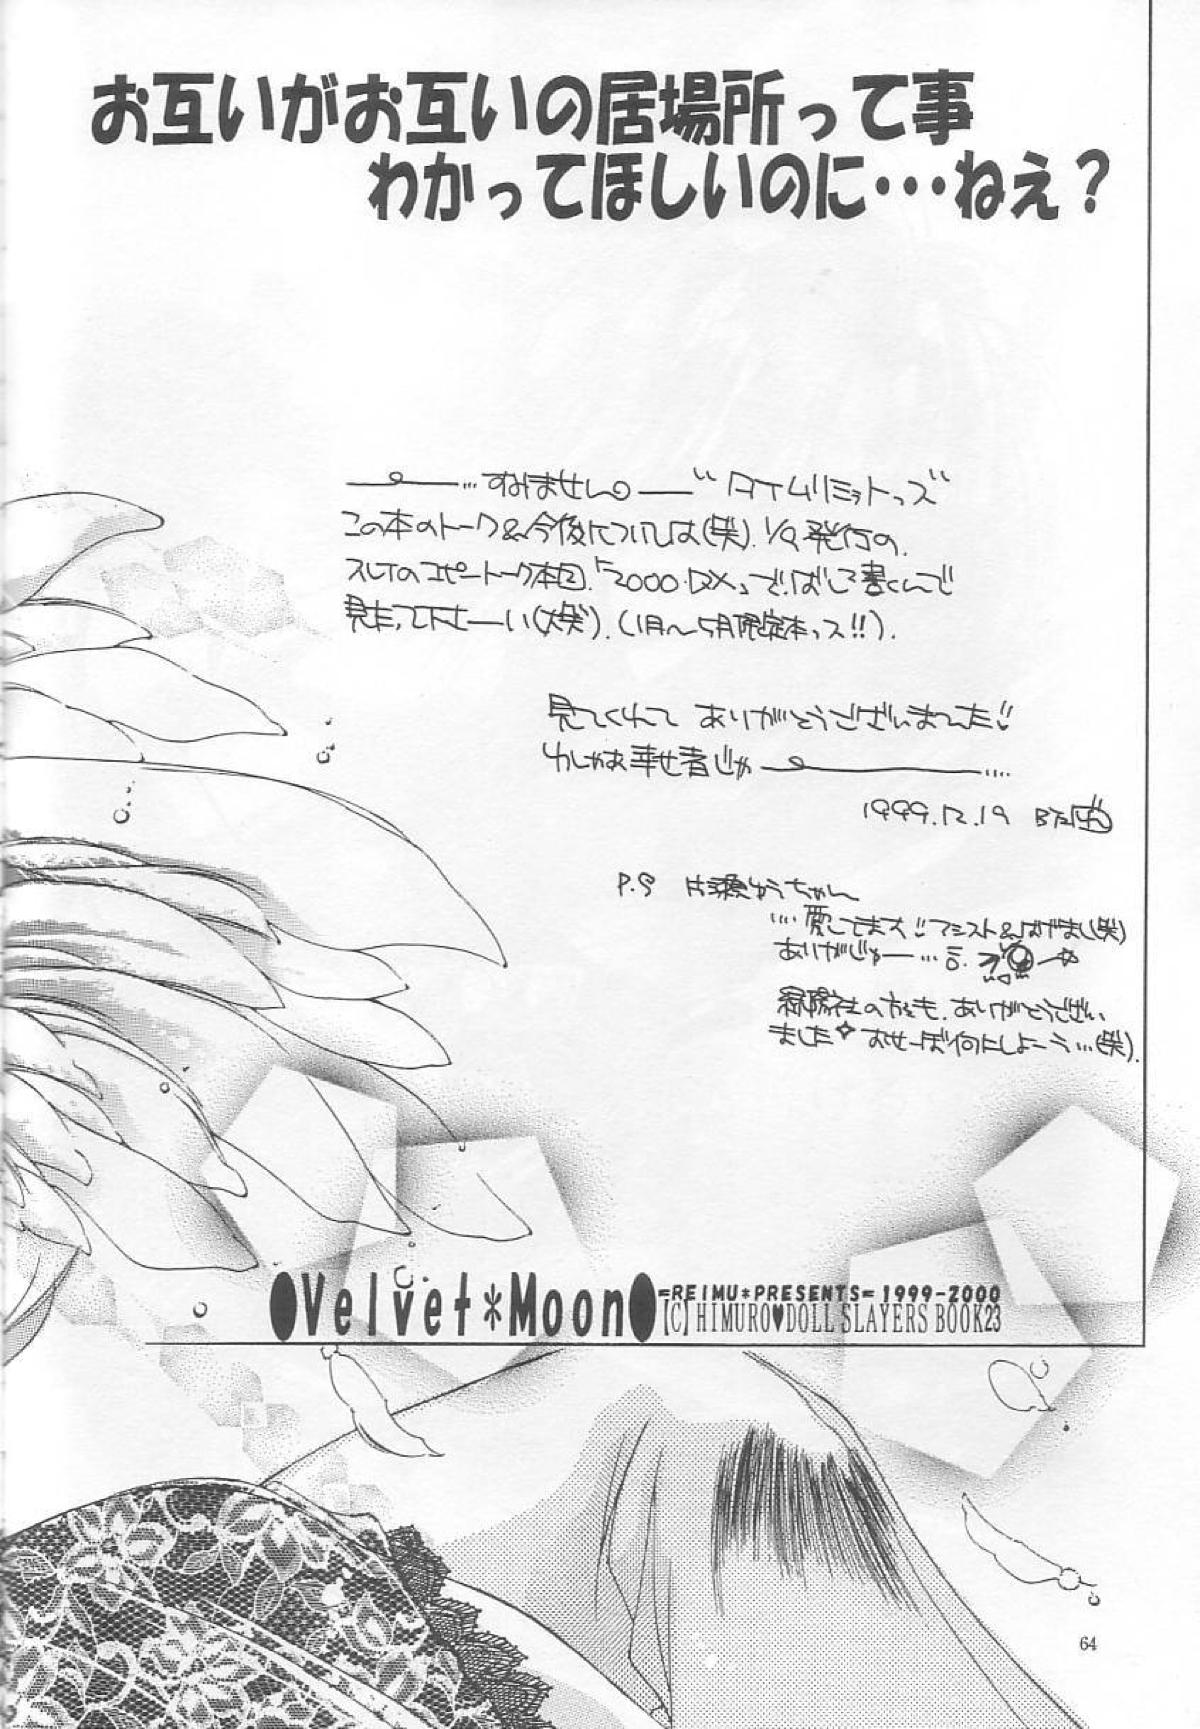 お互いがお互いの居場所って事
わかってほしいのに・・・ねえ？
…すみません。"タイムリミットっズ"
この本のトーク&今後については(笑). 1/9発行の.
スレTのコピートーク本回.「2000.DX」で.ばして書くんで
見たって下さーい(大笑).(1月〜5月限定本っス!!).
見てくれて ありがとうございました!!
わしゃあ幸せ者じゃ
1999.12.19
P.S 片瀬ゆうちゃん
…愛してます!! アシスト&はげまし(笑)
ありがじゅー…
緑陽社の方も、ありがとうござい
ました✧ おせーぼ何にしよーう…(笑).
●Velvet＊Moon●
=REIMU＊PRESENTS=1999-2000
[C]HIMURO♥DOLL SLAYERS BOOK23
64